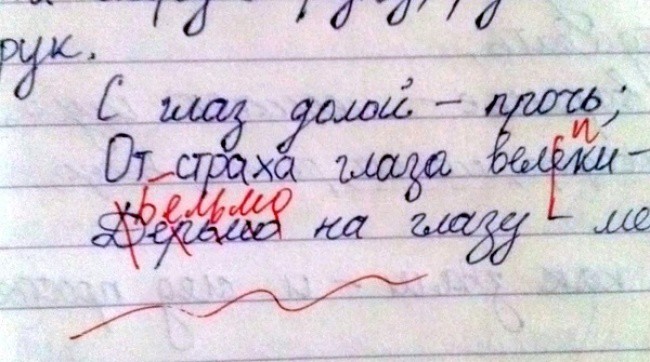 рук.
С глаз долой – прочь;
От страха глаза велеки – и
Бельмо
Дерьмо на глазу – ме